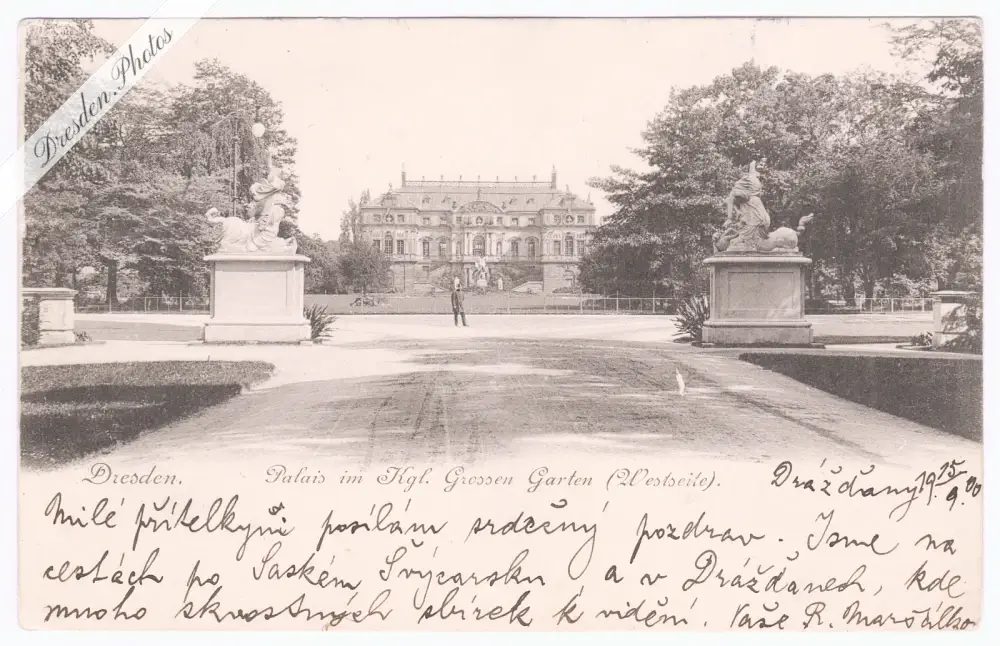 Dresden.Photos
Dresden. Palais im Kgl. Grossen Garten (Westseite).
Drážďany 19 15/9. 00
Milé přítelkyni posílám srdečný pozdrav. Jsme na
cestách po Saském Švýcarsku a v Drážďanech, kde
mnoho skvostných sbírek k vidění. Vaše R. Maršálko